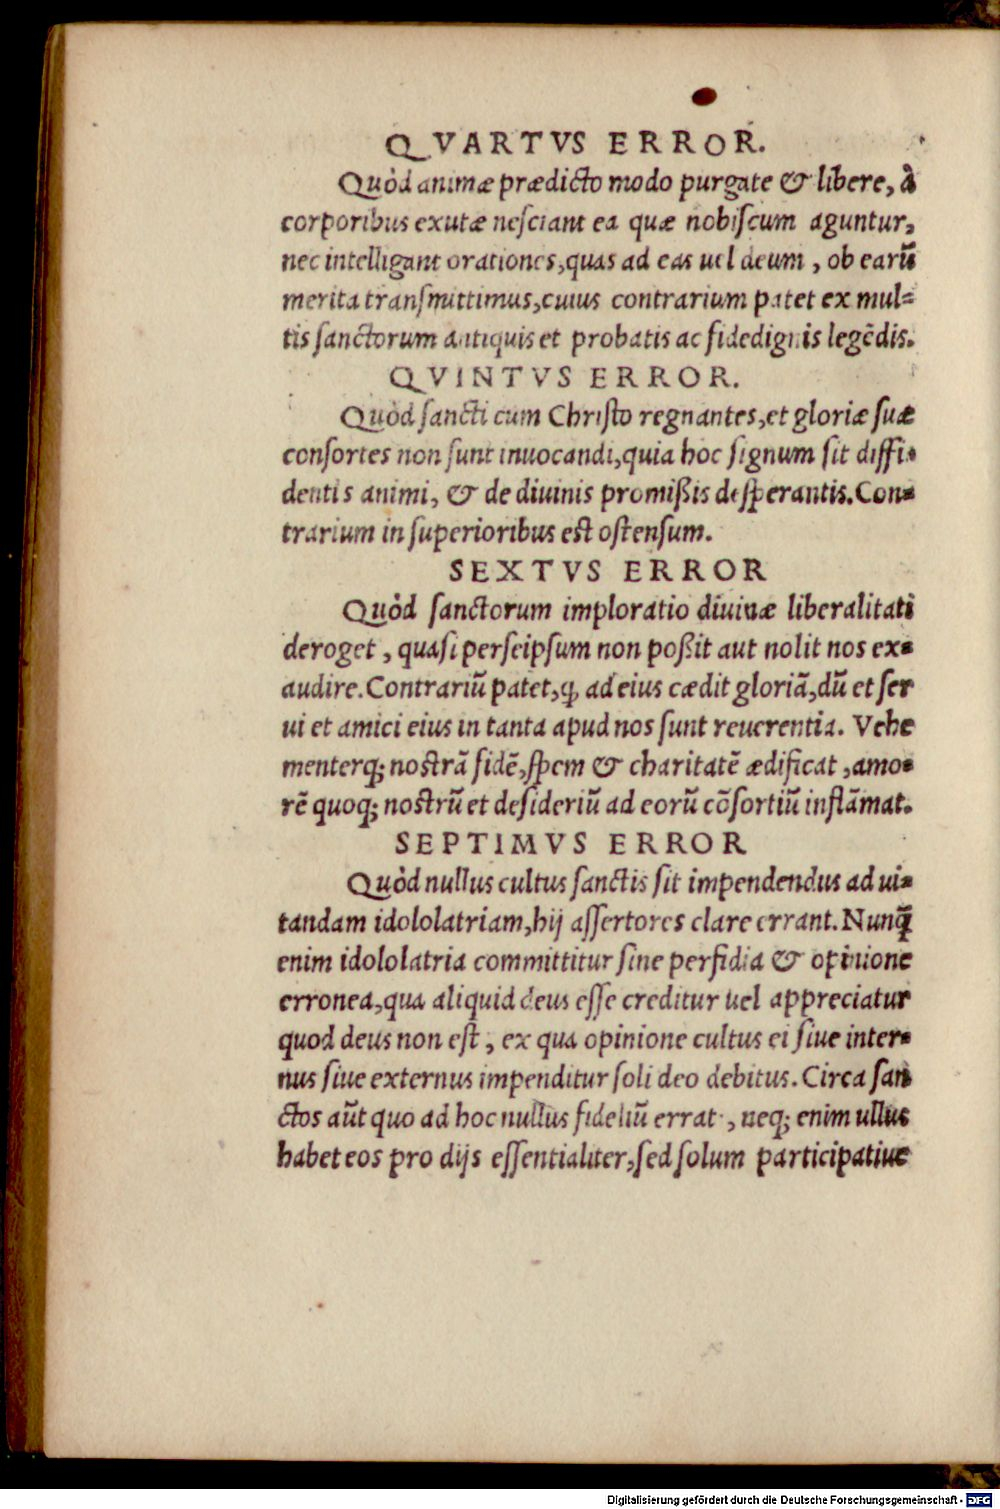 QVARTVS ERROR.
Quòd animæ prædicto modo purgate & libere, à
corporibus exutæ nesciant ea quæ nobiscum aguntur,
nec intelligant orationes, quas ad eas uel deum, ob earũ
merita transmittimus, cuius contrarium patet ex mul=
tis sanctorum antiquis et probatis ac fidedignis legẽdis.
QVINTVS ERROR.
Quòd sancti cum Christo regnantes, et gloriæ suæ
consortes non sunt inuocandi, quia hoc signum sit diffi-
dentis animi, & de diuinis promißis desperantis. Con-
trarium in superioribus est ostensum.
SEXTVS ERROR
Quòd sanctorum imploratio diuinæ liberalitati
deroget, quasi perseipsum non poßit aut nolit nos ex-
audire. Contrariũ patet, ꝙ ad eius cædit gloriã, dũ et ser
ui et amici eius in tanta apud nos sunt reuerentia. Vehe
menterq; nostrã fidẽ, spem & charitatẽ ædificat, amo-
rẽ quoq; nostrũ et desideriũ ad eorũ cõsortiũ inflãmat.
SEPTIMVS ERROR
Quòd nullus cultus sanctis sit impendendus ad ui-
tandam idololatriam, hij assertores clare errant. Nunq̃
enim idololatria committitur sine perfidia & opinione
erronea, qua aliquid deus esse creditur uel appreciatur
quod deus non est, ex qua opinione cultus ei siue inter-
nus siue externus impenditur soli deo debitus. Circa san
ctos aũt quo ad hoc nullus fideliũ errat, neq; enim ullus
habet eos pro dijs essentialiter, sed solum participatiue
Digitalisierung gefördert durch die Deutsche Forschungsgemeinschaft - DFG